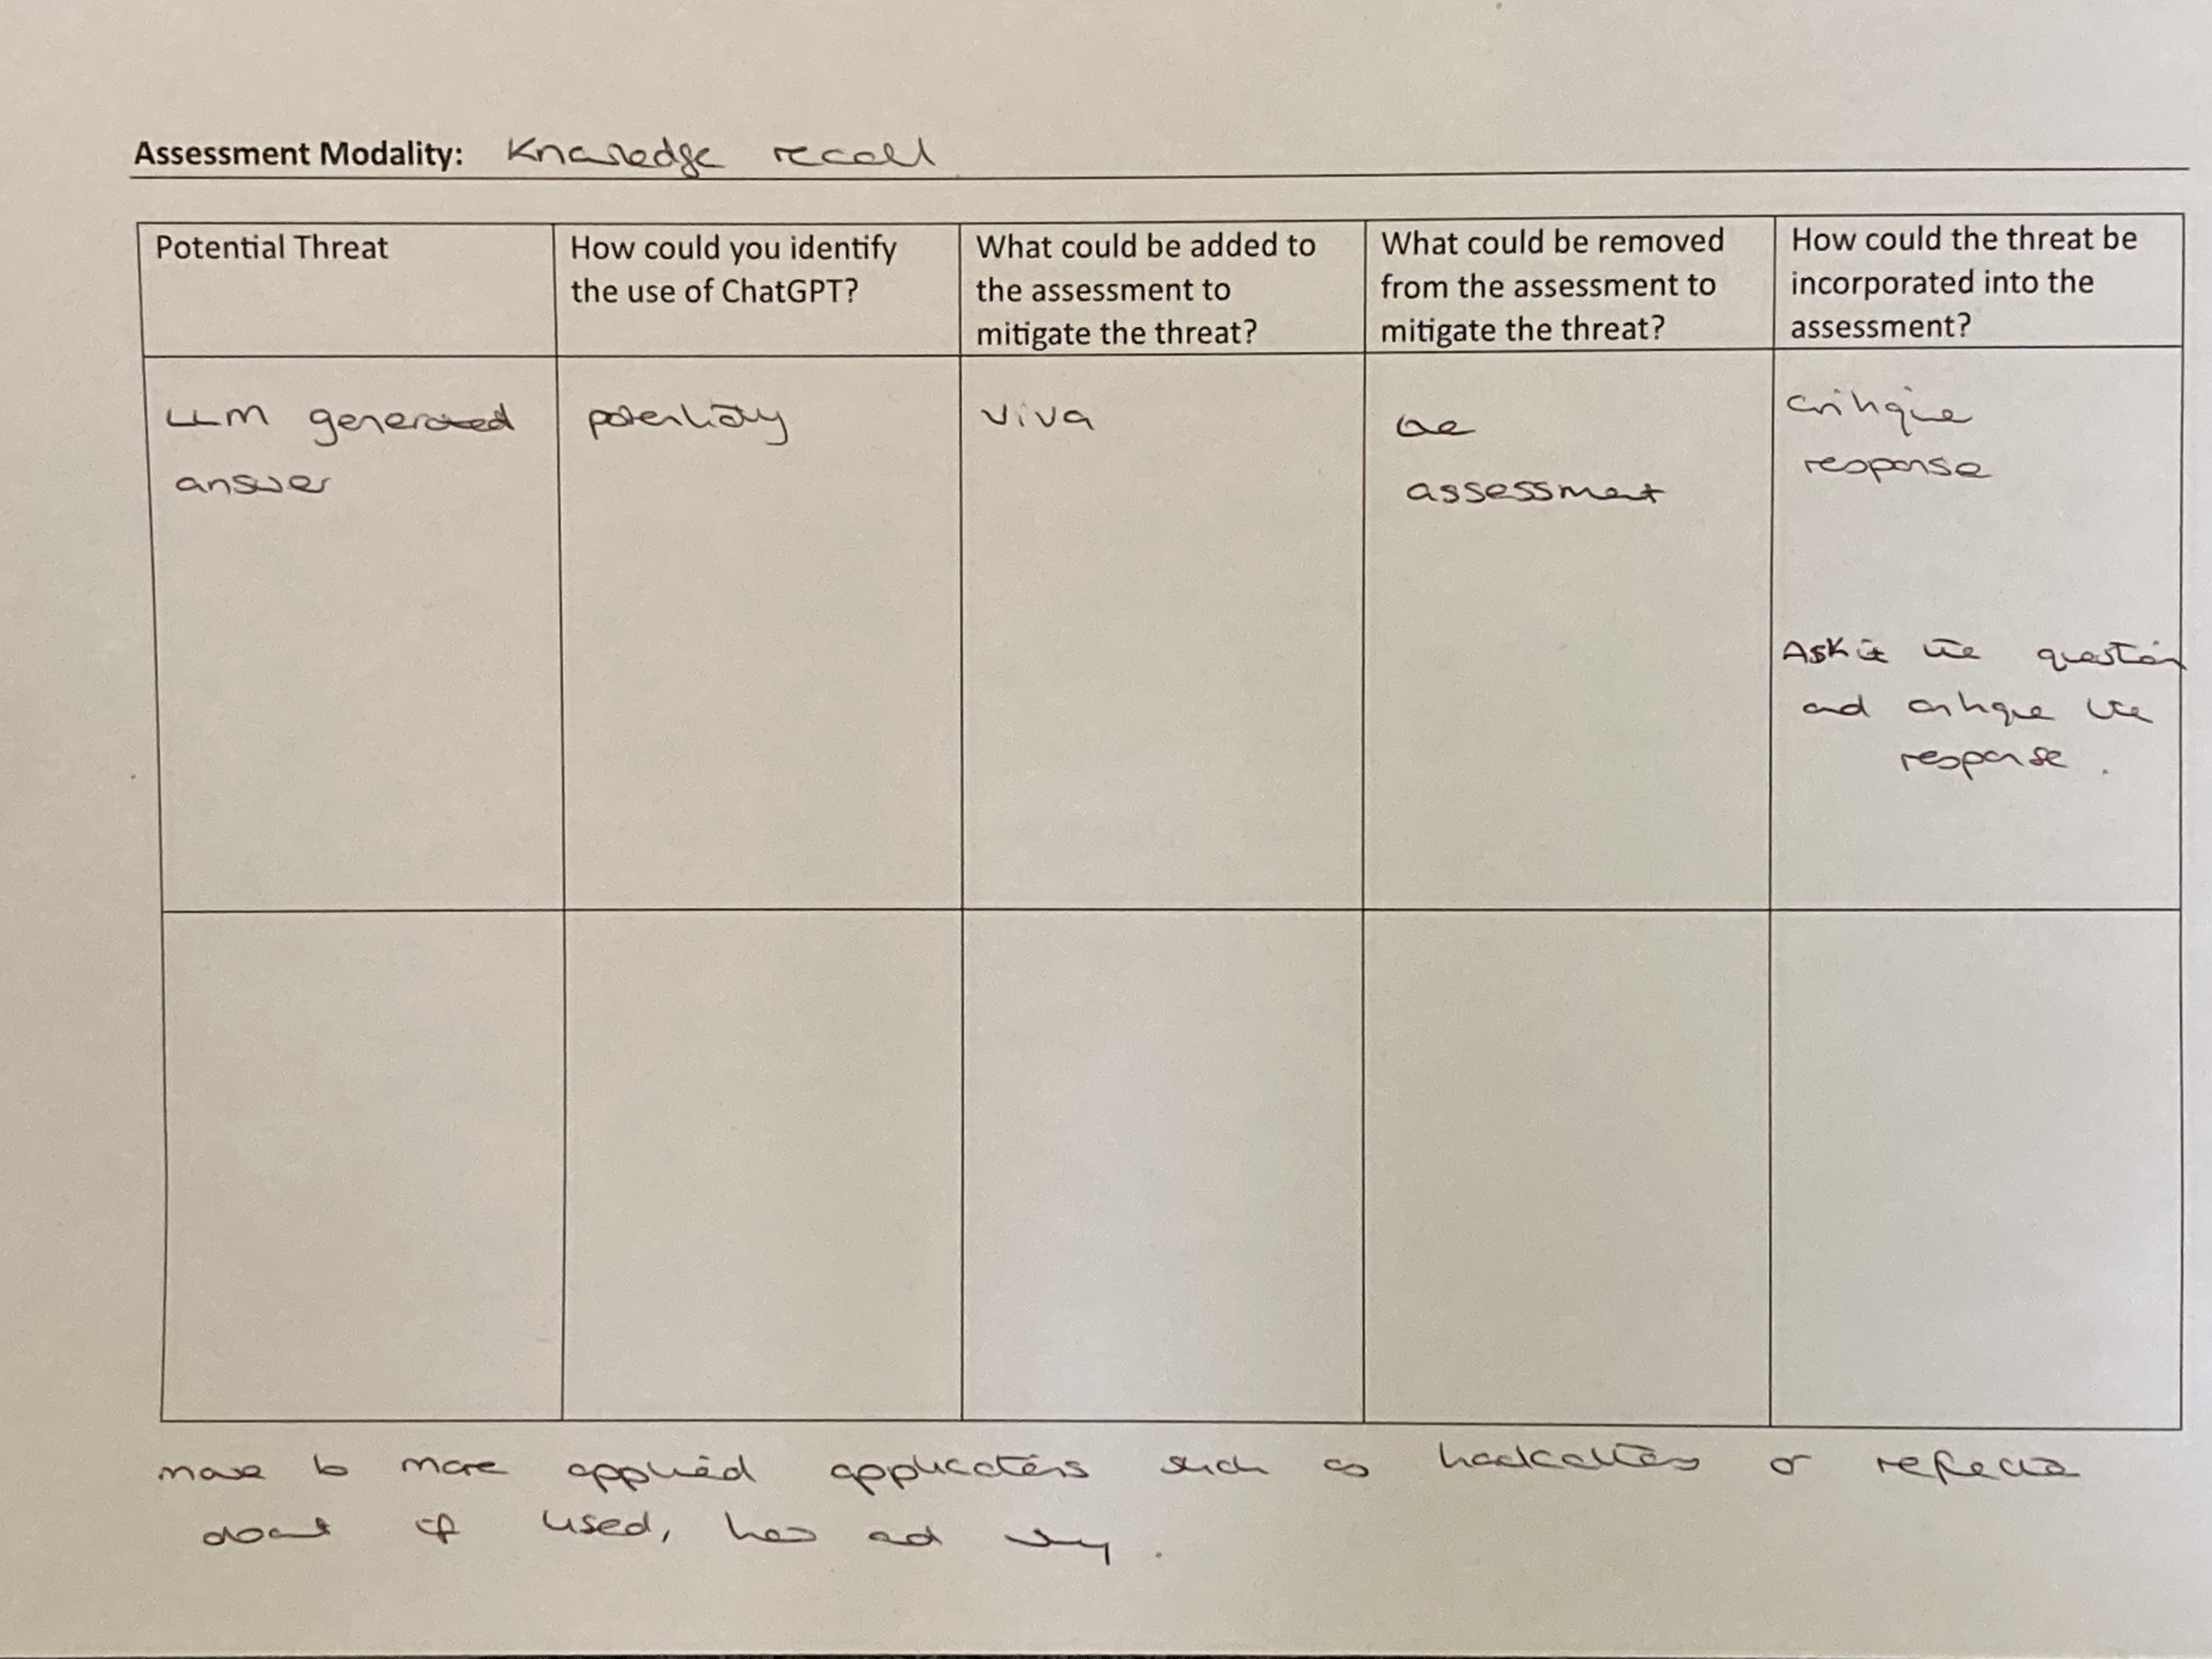 Assessment Modality: Knowledge recall
Potential Threat
How could you identify
the use of ChatGPT?
What could be added to
the assessment to
mitigate the threat?
What could be removed
from the assessment to
mitigate the threat?
How could the threat be
incorporated into the
assessment?
LLM generated
answer
potentially
viva
the
assessment
critique
response
Ask it the question
and critique the
response.
move to more applied applications such as hackathons or
if used, how and why.